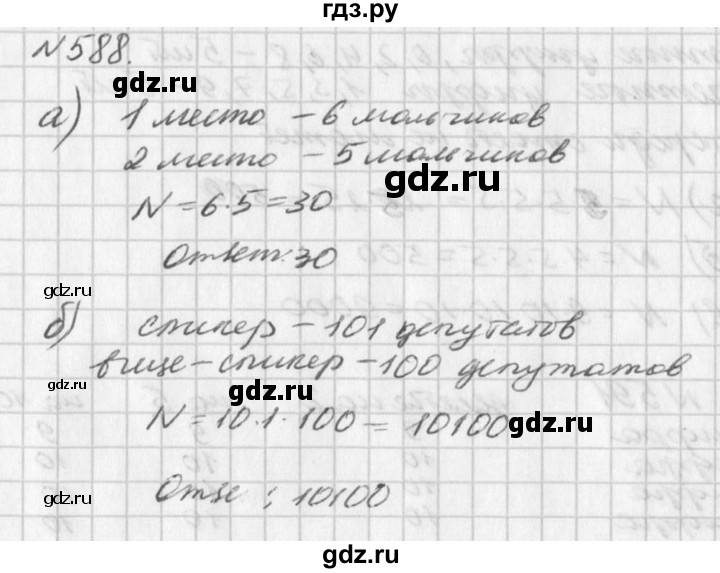 гдз.ру
№588.
gdz.ru
а) 1 место – 6 мальчиков
2 место – 5 мальчиков
gdz.ru
N = 6·5 = 30
Ответ: 30
gdz.ru
gdz.ru
б) спикер – 101 депутатов
gdz.ru
вице-спикер – 100 депутатов
gdz.ru
N = 10.1·100 = 10100
gdz.ru
gdz.ru
: 10100
gdz.ru